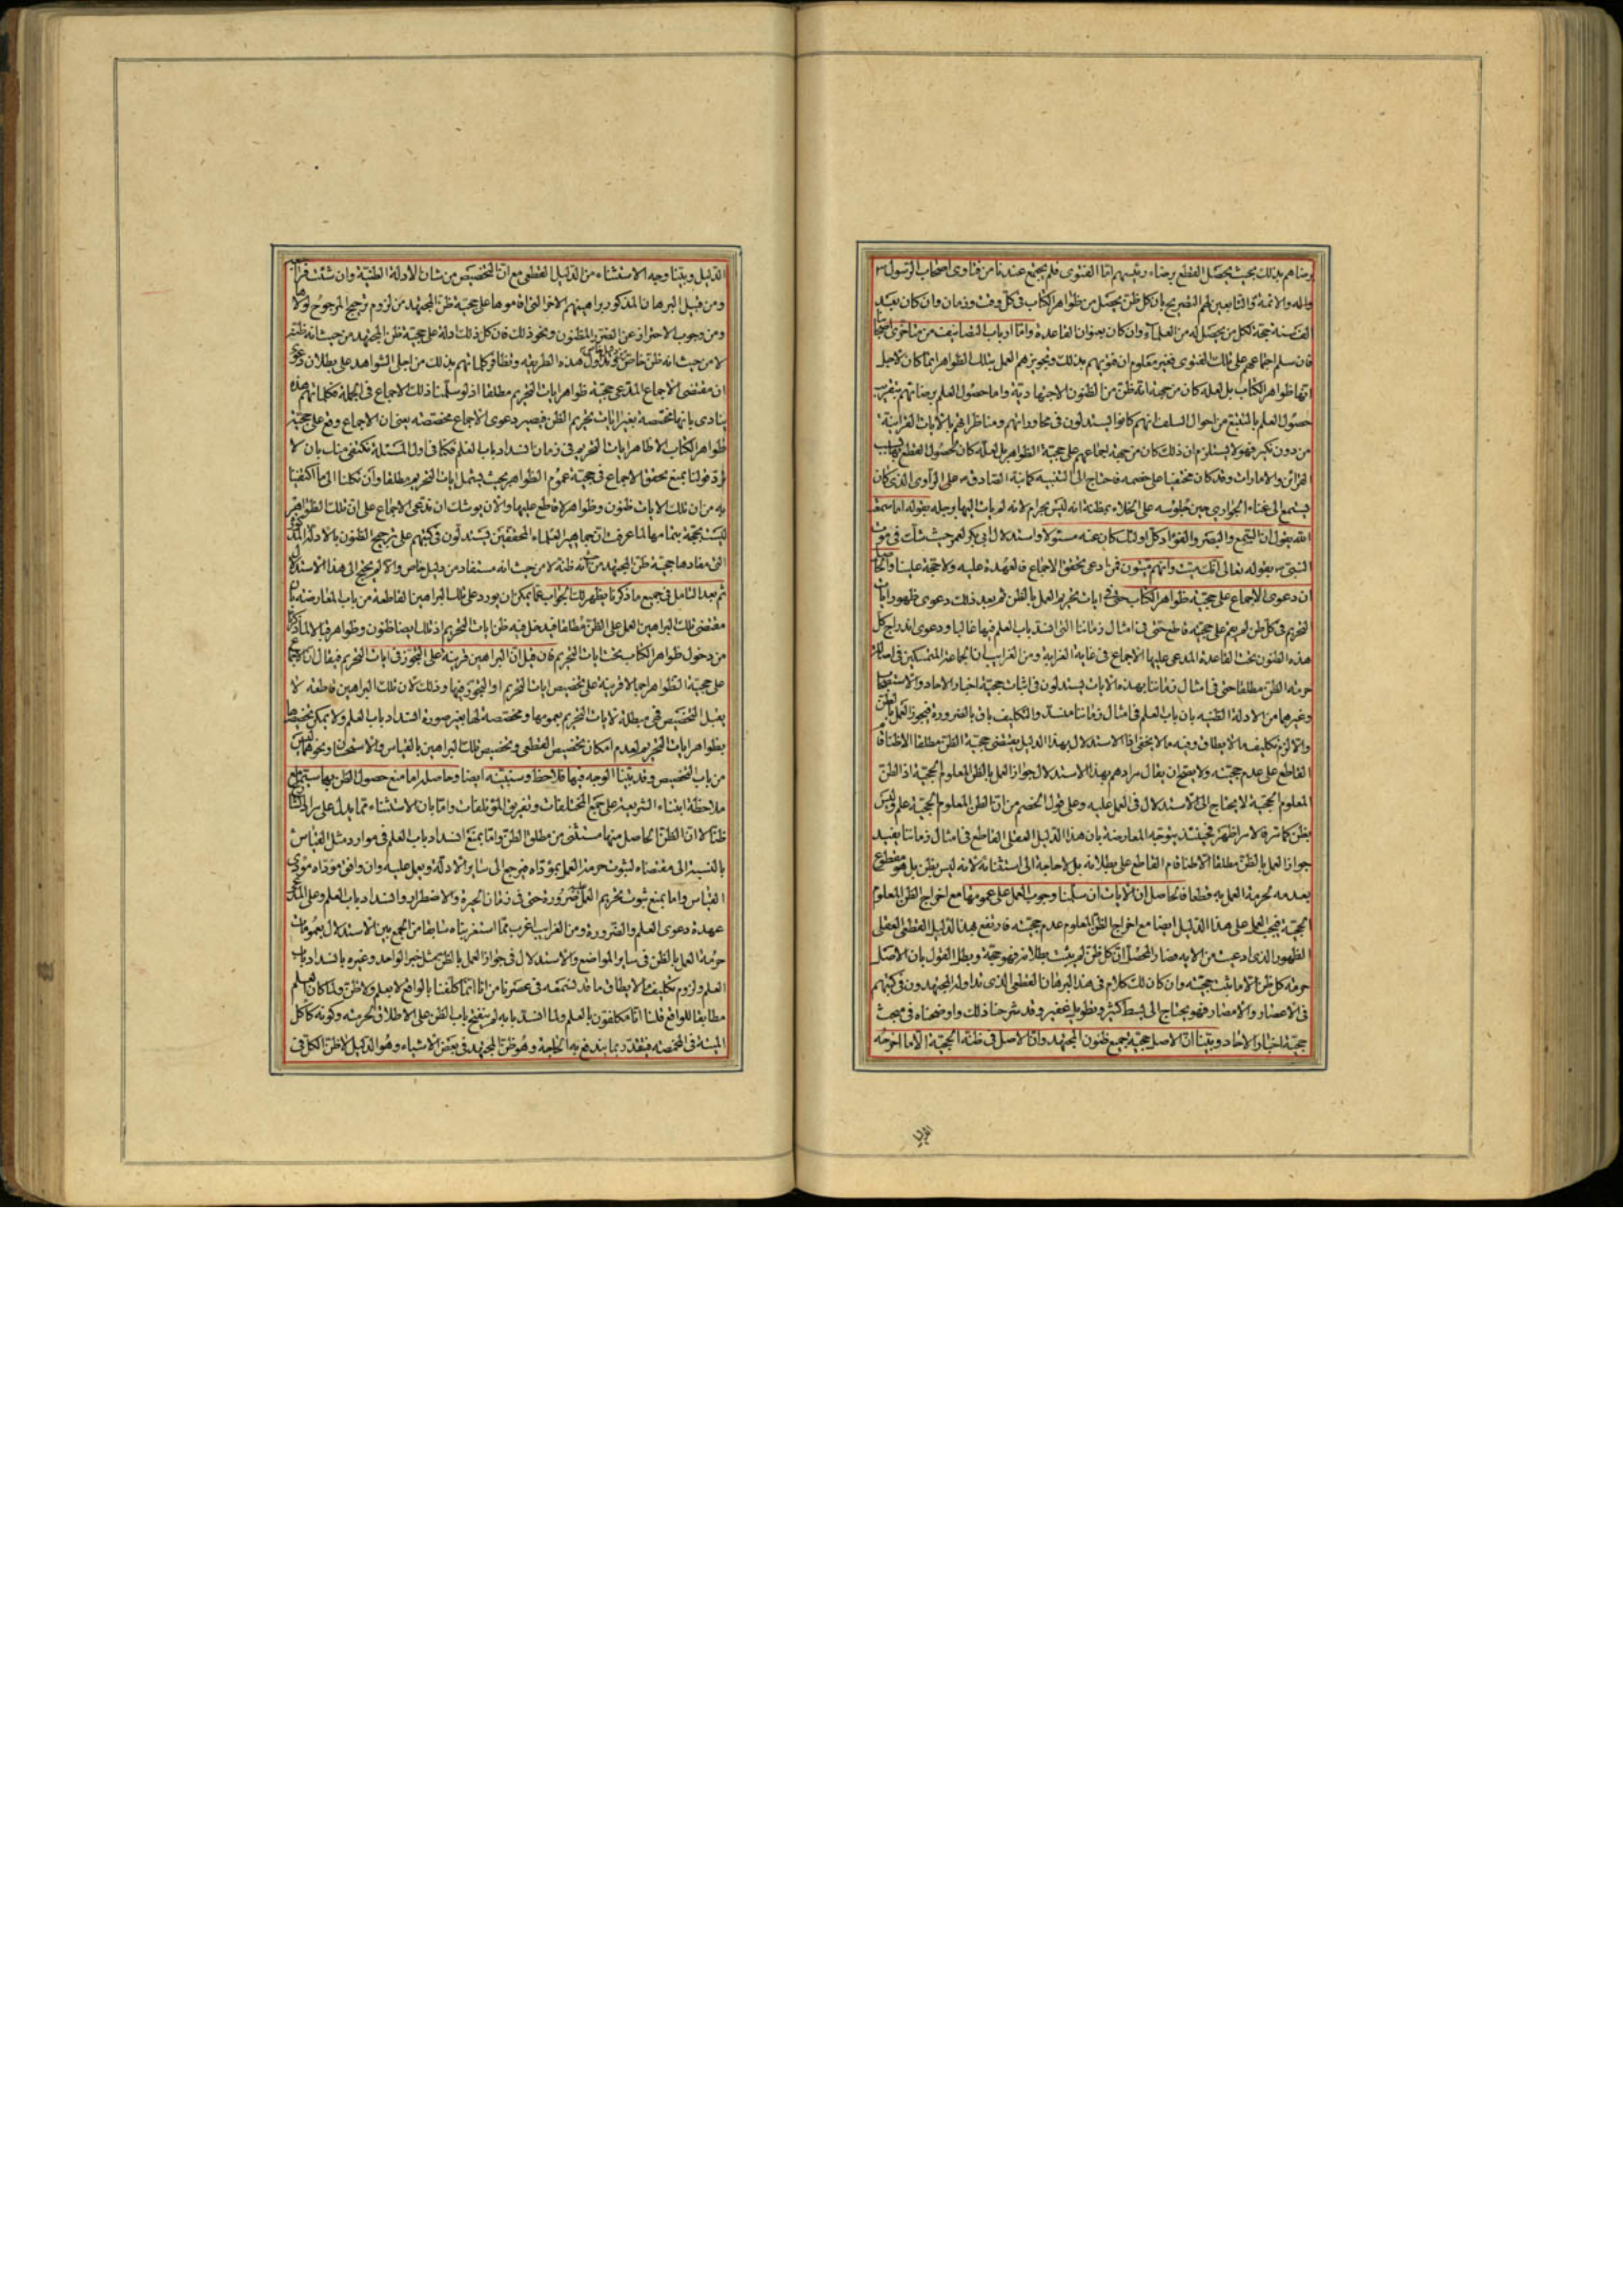 رضاهم بذلك بحيث يحصل القطع برضاء رئيسهم اما الفتوى فلم يجتمع عندنا من فتاوى اصحاب الرسول ص
واله والائمة والتابعين لهم التصريح بان كل ظن يحصل من ظواهر الكتاب فى كل وقت وزمان وان كان بعيد
حجة لكل من يحصل له من العلماء وان كان بعنوان القاعدة واما ارباب التصانيف من متاخرى اصحابنا
فان سلم اجماعهم على تلك الفتوى فغير معلوم ان فتويهم بذلك وتجويزهم العمل بتلك الظواهر انما كان لاجل
انها ظواهر الكتاب بل لعله كان من جهة انه ظن من الظنون الاجتهادية واما حصول العلم برضائهم بتقريب
حصول العلم بالتتبع من احوال السلف انهم كانوا يستدلون فى محاوراتهم ومناظراتهم بالايات القرانية
من دون نكير فهو لا يستلزم ان ذلك كان من جهة اجماعهم على حجية الظواهر بل لعله كان لحصول القطع لهم
القرائن والامارات وقد كان مختفيا على خصمه فاحتاج الى التنبيه كما نبه الصادق ع على الراوى الذى كان
يستمع الى غناء الجوارى حين جلوسه على الخلاء بمظنة انه ليس بحرام لانه لم يات اليها برجله بقوله اما سمعت
الله يقول ان السمع والبصر والفؤاد كل اولئك كان عنه مسئولا واستدلال ابى بكر لعمر حيث شك فى موت
النبى ص بقوله تعالى انك ميت وانهم ميتون فمن ادعى تحقق الاجماع فالعهدة عليه ولا حجة علينا والحاصل
ان دعوى الاجماع على حجية ظواهر الكتاب حتى فى ايات تحريم العمل بالظن ثم بعد ذلك دعوى ظهور ايات
التحريم فى كل ظن لم يقم على حجيته قاطع حتى فى امثال زماننا التى انسد باب العلم فيها غالبا ودعوى اندراج كل
هذه الظنون تحت القاعدة المدعى عليها الاجماع فى غاية الغرابة ومن الغرايب ان الجماعة المتمسكين فى اصالة
حرمة الظن مطلقا حتى فى امثال زماننا بهذه الايات يستدلون فى اثبات حجية اخبار الاحاد والاستصحاب
وغيرهما من الادلة الظنية بان باب العلم فى امثال زماننا منسد والتكليف باق بالضرورة فيجوز العمل بالظن
والا لزم تكليف ما لا يطاق وفيه ما لا يخفى اذ الاستدلال بهذا الدليل يقتضى حجية الظن مطلقا الا ظنا قام
القاطع على عدم حجيته ولا يصح ان يقال مرادهم بهذا الاستدلال جواز العمل بالظن المعلوم الحجية اذ الظن
المعلوم الحجية لا يحتاج الى الاستدلال فى العمل عليه وعلى قول الخصم من ان الظن المعلوم الحجية علم وليس
بظن كما مر فالامر اظهر فحينئذ يتوجه المعارضة بان هذا الدليل العقلى القاطع فى امثال زماننا يفيد
جواز العمل بالظن مطلقا الا ظنا قام القاطع على بطلانه بل لا حاجة الى استثنائه لانه ليس بظن بل هو مقطوع
بعدمه لحرمة العمل به قطعا فالحاصل ان الايات ان سلمنا وجوب العمل على عمومها مع اخراج الظن المعلوم
الحجية فيجب العمل على هذا الدليل ايضا مع اخراج الظن المعلوم عدم حجيته فارتفع بهذا الدليل القطعى العقلى
الظهور الذى ادعيت من الاية فصار المحصل ان كل ظن لم يثبت بطلانه فهو حجة وبطل القول بان الاصل
حرمة كل ظن الا ما ثبت حجيته وان كان لك كلام فى هذا البرهان القطعى الذى تداوله المجتهدون فى كتبهم
فى الاعصار والامصار فهو يحتاج الى بسط كثير وتطويل غفير وقد شرحنا ذلك واوضحناه فى مبحث
حجية اخبار الاحاد وبينا ان الاصل حجية جميع ظنون المجتهد وان الاصل فى ظنه الحجية الا ما اخرجه
الدليل وبينا وجه الاستثناء من الدليل القطعى مع ان التخصيص من شان الادلة الظنية وان شئت فراجع
ومن قبيل البرهان المذكور براهينهم الاخر التى اقاموها على حجية ظن المجتهد من لزوم ترجيح المرجوح لولاها
ومن وجوب الاحتراز عن الضرر المظنون ونحو ذلك فان كل ذلك ادلة على حجية ظن المجتهد من حيث انه ظن
لا من حيث انه ظن خاص هذه الطريقة وتظافر كلماتهم بذلك من اجل الشواهد على بطلان دعوى
ان مقتضى الاجماع المدعى حجية ظواهر ايات التحريم مطلقا اذ لو سلمنا ذلك الاجماع فى الجملة فكلماتهم هذه
ينادى بانها مختصة بغير ايات تحريم الظن فيصير دعوى الاجماع مختصة بمعنى ان الاجماع وقع على حجية
ظواهر الكتاب الا ظاهر ايات التحريم فى زمان انسداد باب العلم فكما فى اول المسئلة نكتفى مناب بان لا
قولنا بمنع تحقق الاجماع فى حجية عموم الظواهر بحيث يشمل ايات التحريم مطلقا وان تكلنا الى ما اكتفينا
به من ان تلك الايات ظنون وظواهر لا قاطع عليها والان يوشك ان ندعى الاجماع على ان تلك الظواهر
ليست بحجة بتمامها لما عرفت ان جماهير العلماء المحققين يستدلون فى كتبهم على ترجيح الظنون بالادلة المذكورة
التى مفادها حجية ظن المجتهد من حيث انه ظنه لا من حيث انه مستفاد من دليل خاص والا لم يحتج الى هذا الاستدلال
ثم بعد التامل فى جميع ما ذكرنا يظهر لك الجواب عما يمكن ان يورد على تلك البراهين القاطعة من باب المعارضة بان
مقتضى تلك البراهين العمل على الظن مطلقا فيدخل فيه ظن ايات التحريم اذ تلك ايضا ظنون وظواهر قبالا لما ذكرنا
من دخول ظواهر الكتاب تحت ايات التحريم فان قيل ان البراهين قرينة على التجوز فى ايات التحريم فيقال ان الاجماع
على حجية الظواهر اجمالا قرينة على تخصيص ايات التحريم او التجوز فيها وذلك لان تلك البراهين قاطعة لا
يقبل التخصيص فهى مبطلة لايات التحريم بعمومها ومخصصة لها بغير صورة انسداد باب العلم ولا يمكن تخصيصها
بظواهر ايات التحريم لعدم امكان تخصيص القطعى وتخصيص تلك البراهين بالقياس والاستحسان ونحوهما ليس
من باب التخصيص وقد بينا الوجه فيها فلاحظ وسنبينه ايضا وحاصله اما منع حصول الظن بها سيما مع
ملاحظة ابتناء الشريعة على جمع المختلفات وتفريق المؤتلفات واما بان الاستثناء مما يدل على مراد الشارع
ظنا لا ان الظن الحاصل منها مستثنى من مطلق الظن واما بمنع انسداد باب العلم فى موارد مثل القياس
بالنسبة الى مقتضاه لثبوت حرمة العمل بمؤداه فيرجع الى ساير الادلة ويعمل عليه وان وافق مؤداه مؤدى
القياس واما بمنع ثبوت تحريم العمل ضرورة حتى فى زمان الحيرة والاضطرار وانسداد باب العلم وعلى المدعى
عهدة دعوى العلم والضرورة ومن الغرايب اغرب مما استغربناه سابقا من الجمع بين الاستدلال بعمومات
حرمة العمل بالظن فى ساير المواضع والاستدلال فى جواز العمل بالظن بمثل خبر الواحد وغيره بانسداد باب
العلم ولزوم تكليف ما لا يطاق ما قد نسمعه فى عصرنا من انا انما كلفنا بالواقع لا بعلم ولا ظن ولما كان العلم
مطابقا للواقع قلنا انا مكلفون بالعلم ولما انسد بابه لم ينفتح باب الظن على الاطلاق لحرمته وكونه كاكل
الميتة فى المخمصة فيتقدر بما يندفع به الحاجة وهو ظن المجتهد فى بعض الاشياء وهو الدليل لا ظن الكل فى